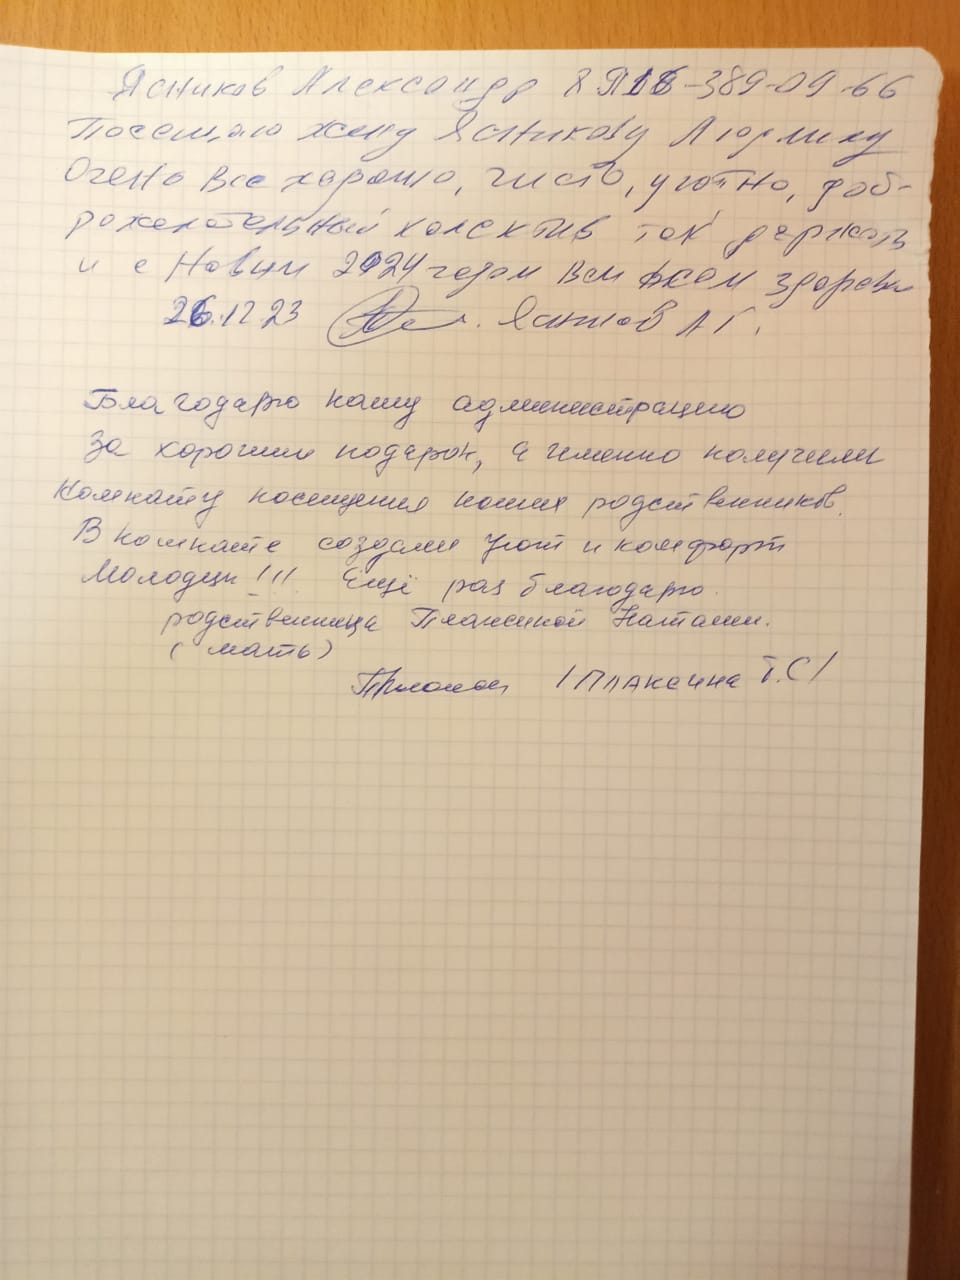 Ясников Александр 8 916-389-09-66
Посещаю жену Ясникову Людмилу
Очень все харошо, чисто, уютно, доб-
рожелательный колектив так держать
и с Новым 2024 годом Всем
26.12 23 Ясников А Г.
Благодарю нашу администрацию
за хороший подарок, а именно получили
комнату посещения наших родственников.
В комнате создали уют и комфорт
Молодцы !!! Ещё раз благодарю.
родственница Плаксиной Натальи.
( мать )
/ Плаксина Т.С /